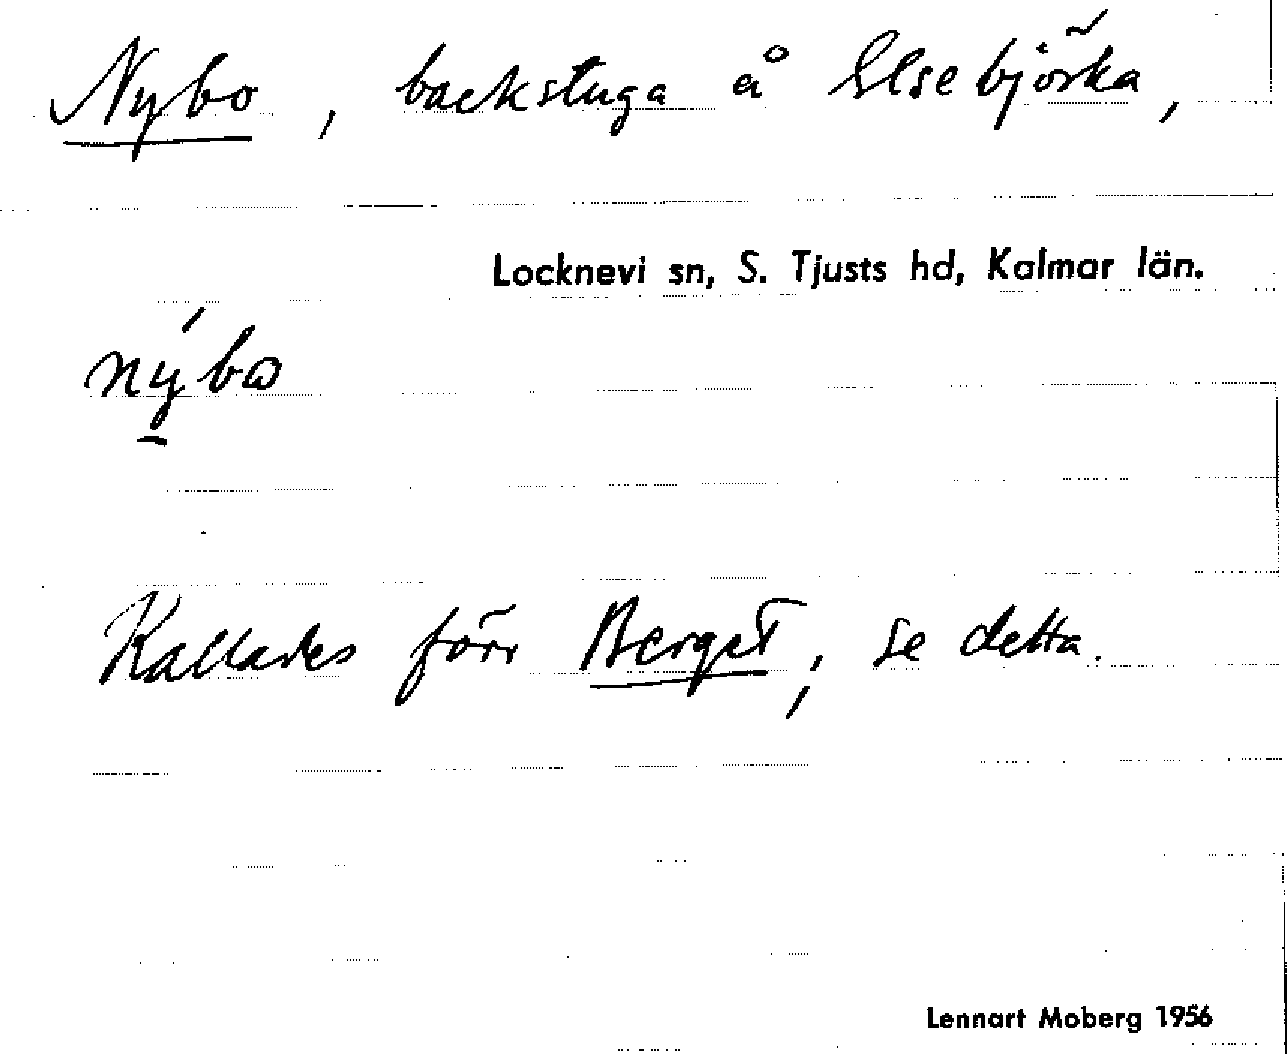 Nybo, backstuga å Elsebjörka,
Locknevi sn, S. Tjusts hd, Kalmar län.
nýbω
Kallades förr Berget, se detta.
Lennart Moberg 1956